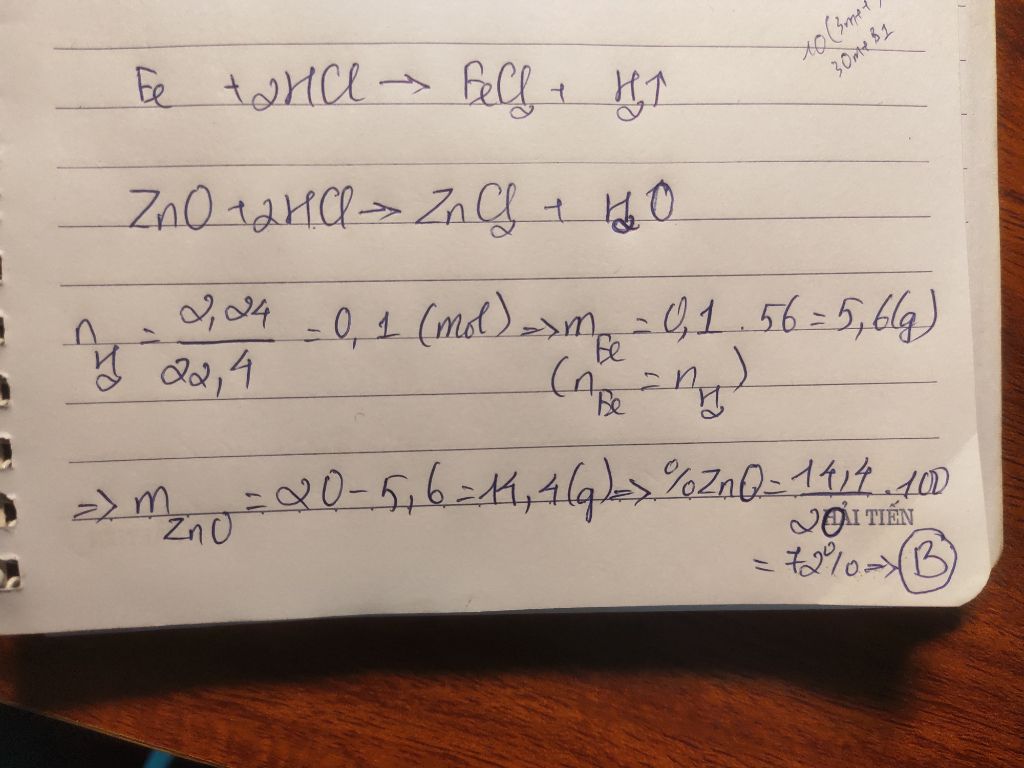 10(3me+
30me B1
Fe + 2HCl → FeCl₂ + H₂↑
ZnO + 2HCl → ZnCl₂ + H₂O
n_H₂ = 2,24/22,4 = 0,1 (mol) => m_Fe = 0,1 . 56 = 5,6(g)
(n_Fe = n_H₂)
=> m_ZnO = 20 - 5,6 = 14,4(g) => %ZnO = 14,4/20 . 100
HẢI TIẾN
= 72% => B